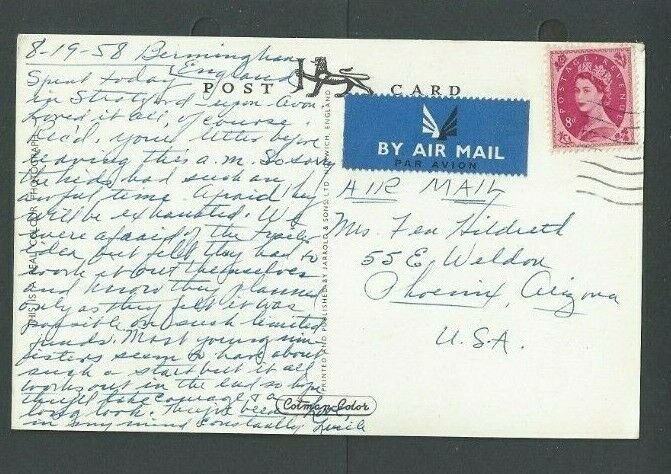 8-19-58 Bermingham
England
Spent today
in Stratford upon Avon
Loved it all, of course.
Rec'd. your letter before
leaving this a.m. So sorry
the kids had such an
awful time. Afraid they
will be exhausted. We
were afraid of the
idea but felt they had to
work it out themselves
and know they planned
only as they felt it was
possible on such limited
funds. Most young min-
isters seem to have about
such a start but it all
works out in the end so hope
they'll take courage & a
long look. They've been
in my mind constantly Lucile
POST CARD
BY AIR MAIL
PAR AVION
AIR MAIL
Mrs. Fen Hildreth
55 E. Weldon
Phoenix, Arizona
U.S.A.
POSTAGE REVENUE
8D
THIS IS A REAL COLOUR PHOTOGRAPH
PRINTED AND PUBLISHED BY JARROLD & SONS LTD. NORWICH, ENGLAND
Cotman-Color